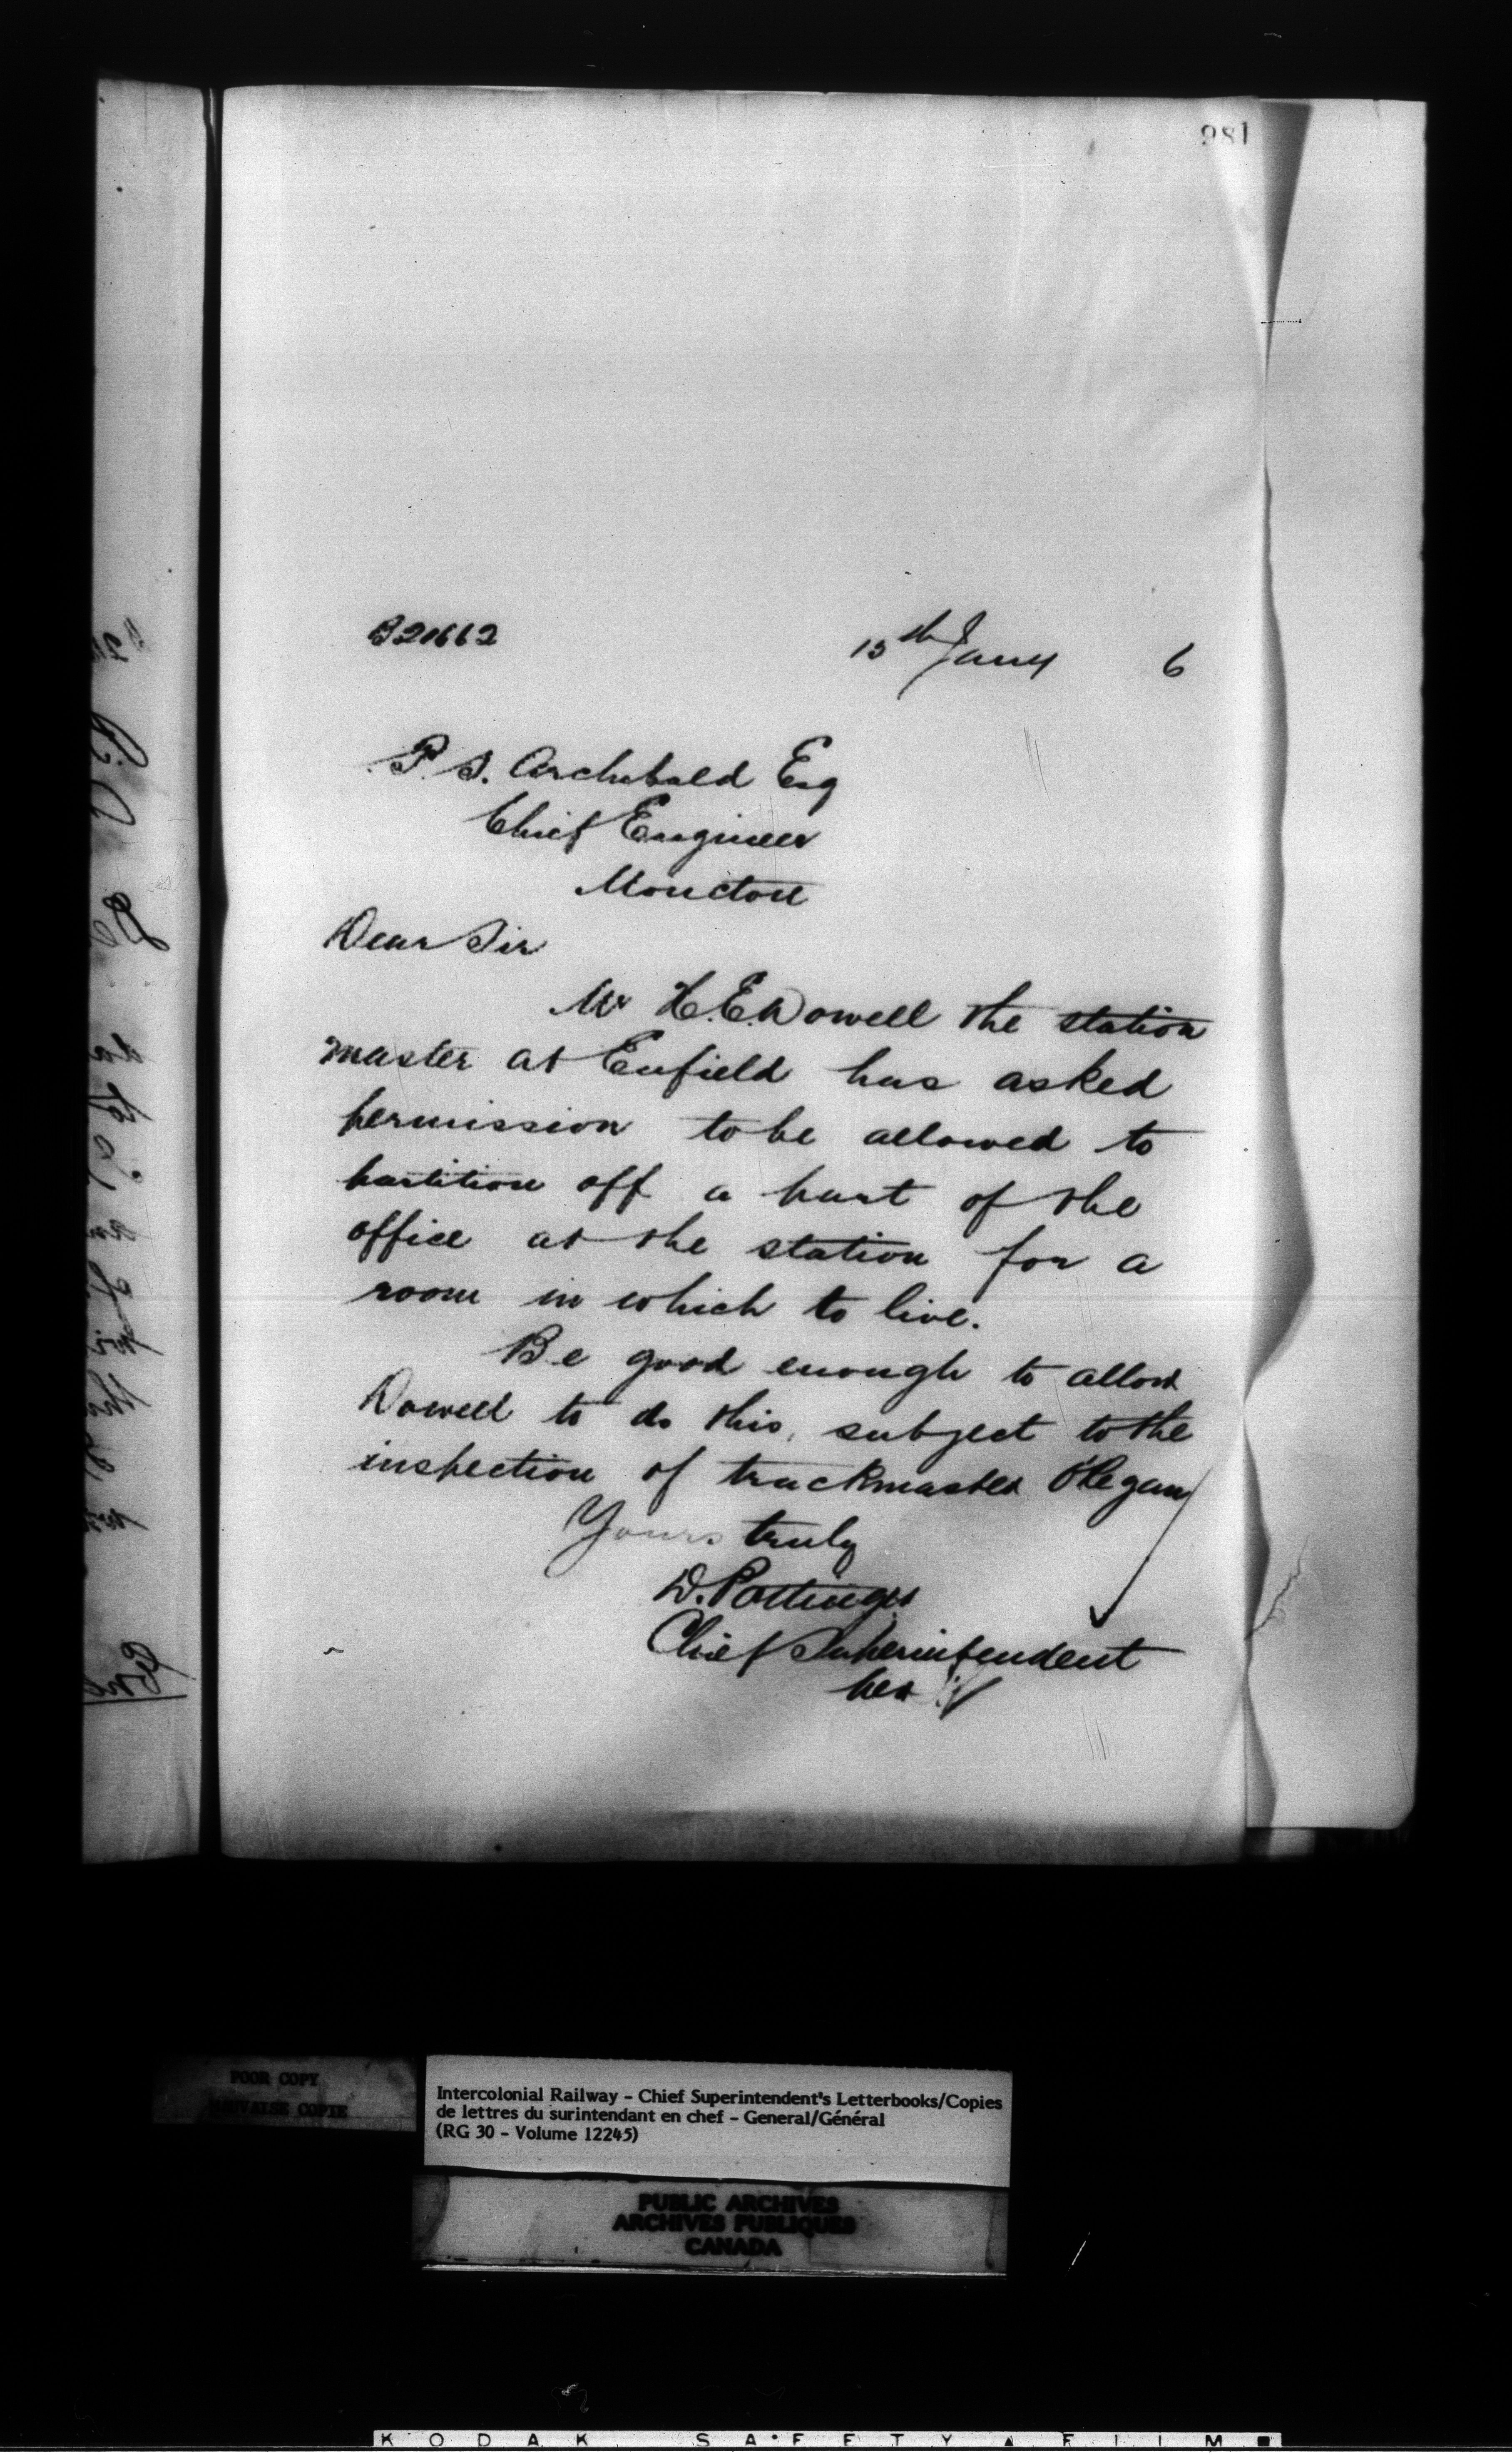 981
B20662
15th Jany 6
P. S. Archibald Esq
Chief Engineer
Moncton
Dear Sir
Mr H. E. Dowell the station
master at Enfield has asked
permission to be allowed to
partition off a part of the
office at the station for a
room in which to live.
Be good enough to allow
Dowell to do this, subject to the
inspection of trackmaster O'Regan
Yours truly
D. Pottinger
Chief Superintendent
per
POOR COPY
MAUVAISE COPIE
Intercolonial Railway - Chief Superintendent's Letterbooks/Copies
de lettres du surintendant en chef - General/Général
(RG 30 - Volume 12245)
PUBLIC ARCHIVES
ARCHIVES PUBLIQUES
CANADA
KODAK SAFETY FILM